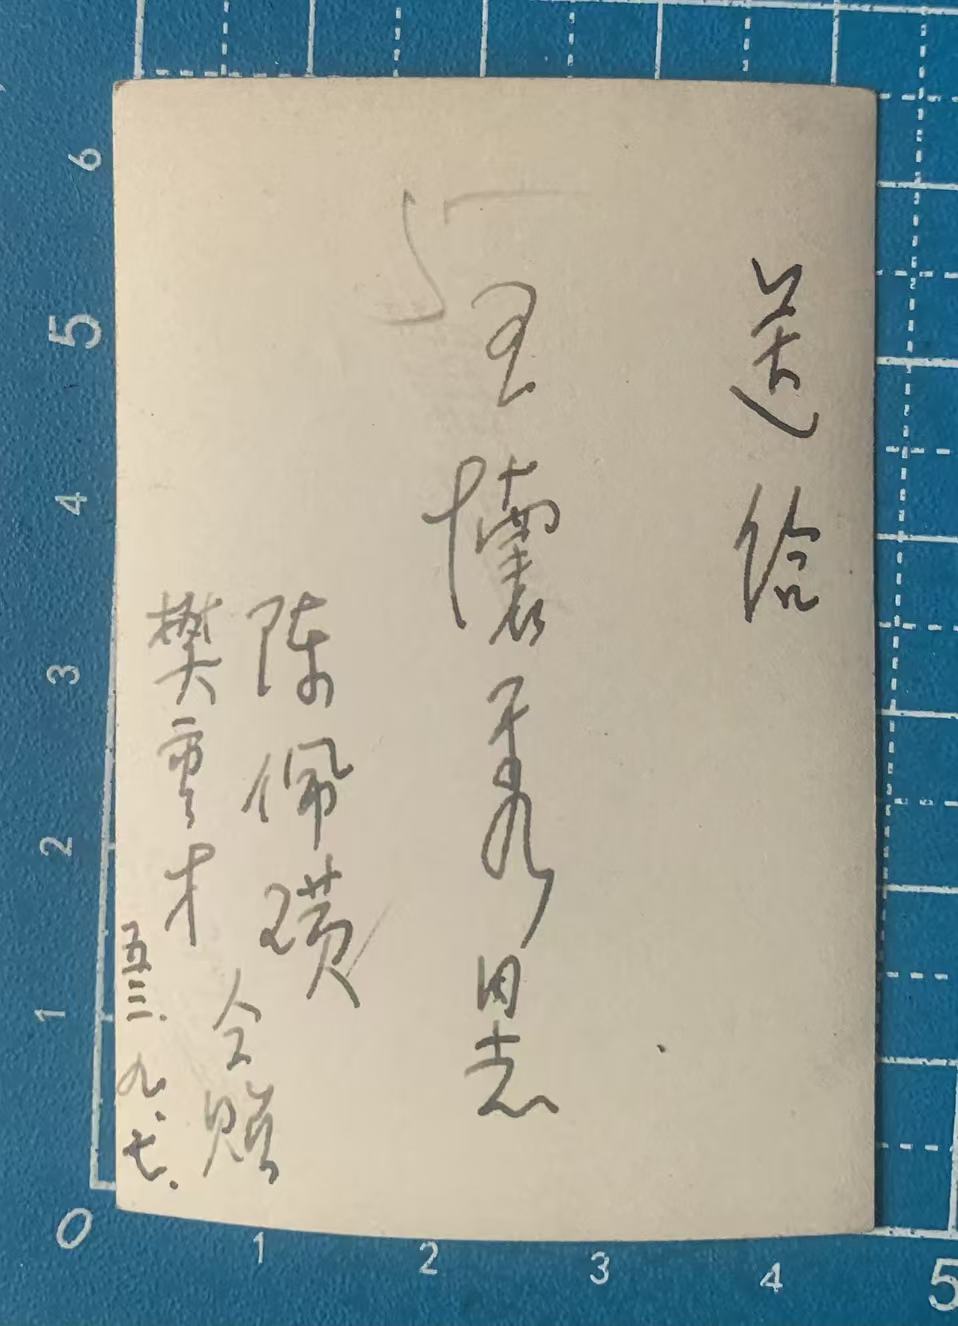 送给
王懷秀同志
陈佩璜
樊雲才
仝赠
五三.九.七.
6
5
4
3
2
1
0
1
2
3
4
5